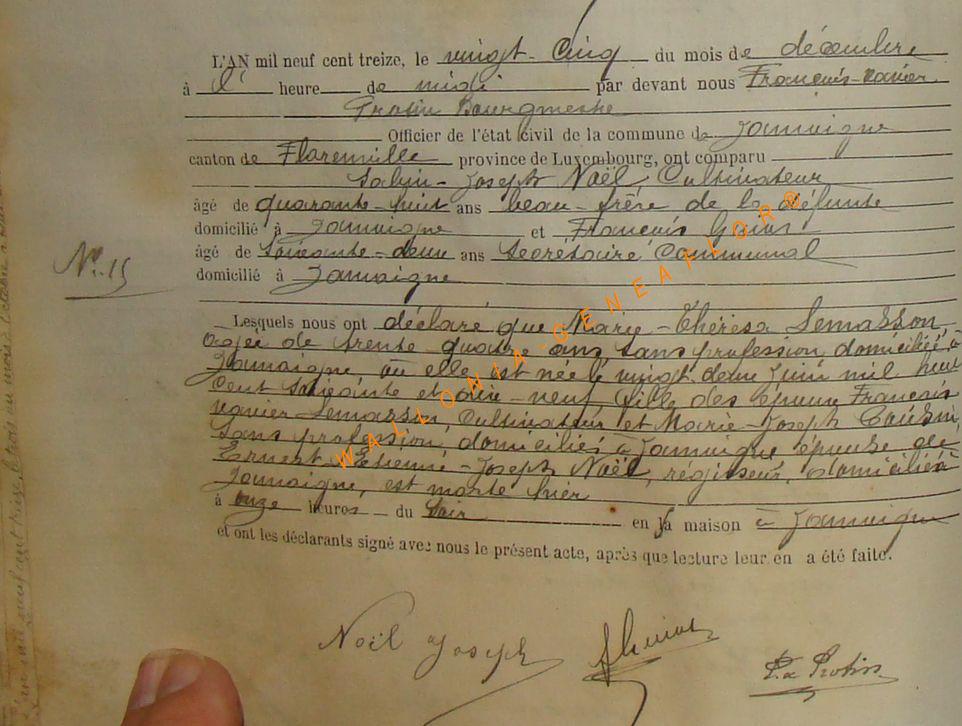 L'AN mil neuf cent treize, le vingt-Cinq du mois de décembre
à l' heure de midi par devant nous François-Xavier
Protin Bourgmestre
Officier de l'état civil de la commune de Jamoigne
canton de Florenville province de Luxembourg, ont comparu
Joseph Noël, Cultivateur
âgé de quarante-huit ans beau-frère de la défunte
domicilié à Jamoigne et François
âgé de Soixante-deux ans Secrétaire Communal
domicilié à Jamoigne
N°. 15
Lesquels nous ont déclaré que Marie-Thérèse Lemasson,
agée de trente quatre ans, sans profession, domiciliée à
Jamoigne, où elle est née le vingt deux Juin mil huit
Cent soixante et dix-neuf fille des époux François
Xavier Lemasson, Cultivateur et Marie-Joseph
Sans profession, domiciliés à Jamoigne épouse de
Ernest-Etienne-Joseph Noël, régisseur, domicilié à
Jamoigne, est morte hier
à onze heures du Soir en sa maison à Jamoigne
et ont les déclarants signé avec nous le présent acte, après que lecture leur en a été faite.
Noël Joseph
WALLONIA-GENEAFLOR®